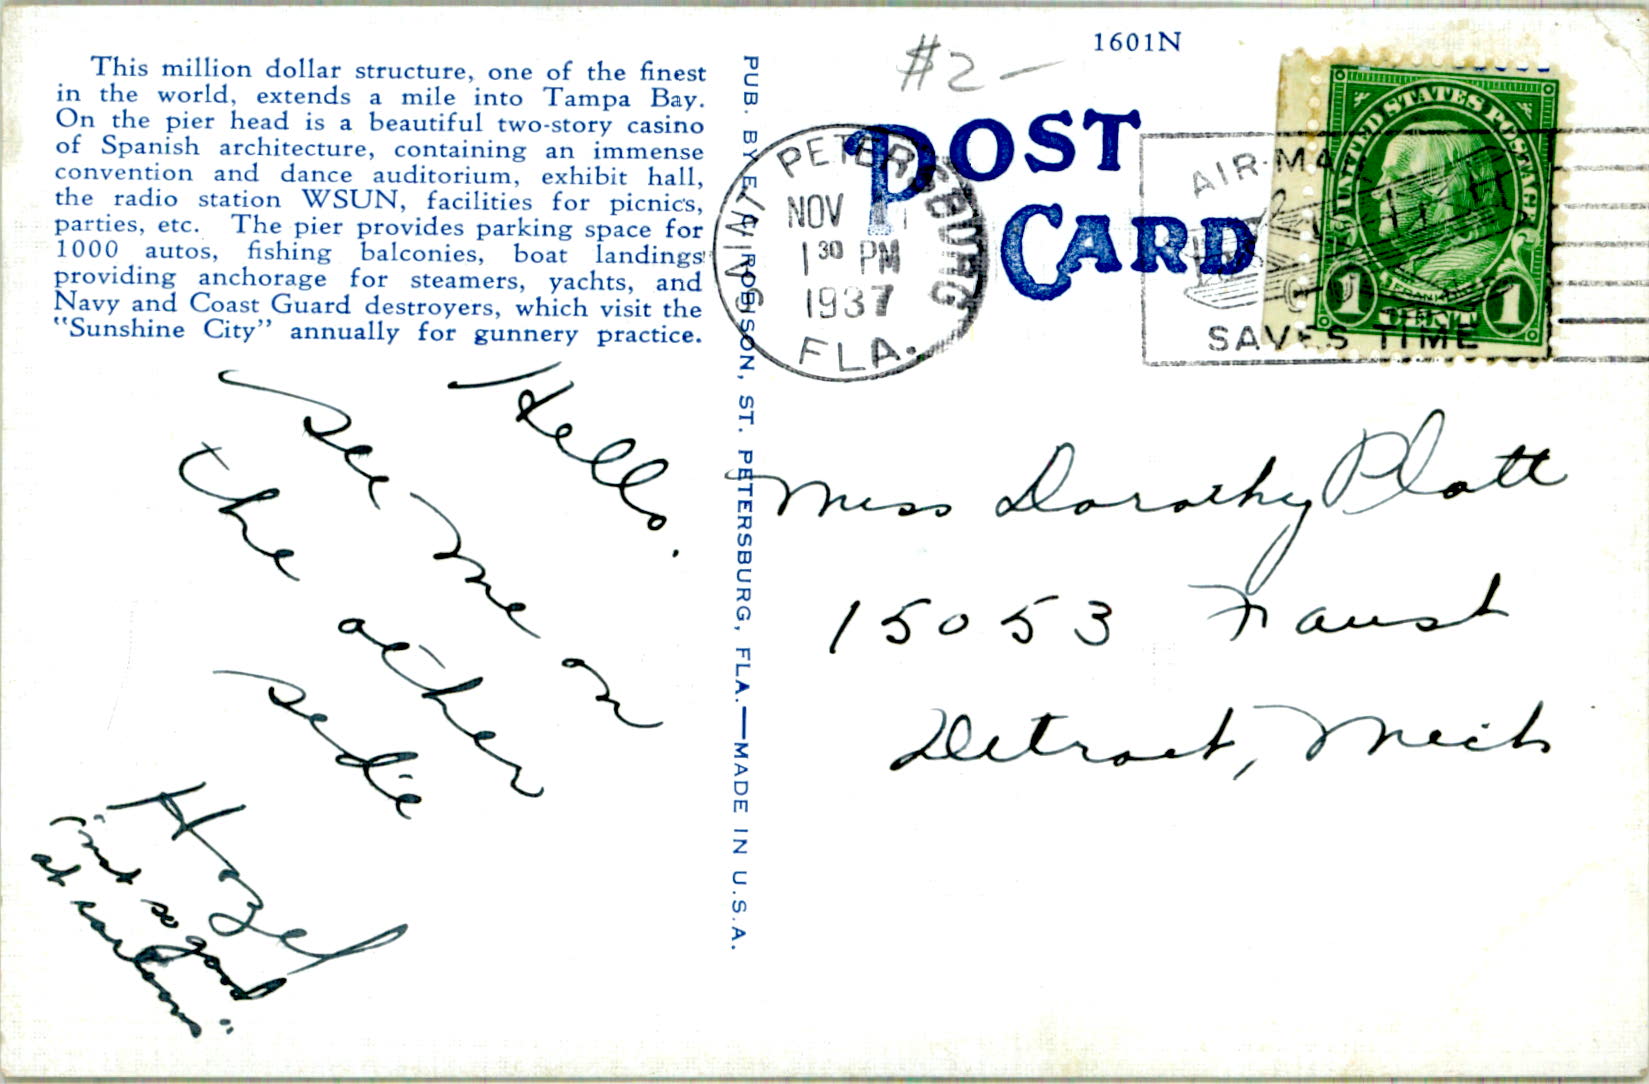 This million dollar structure, one of the finest
in the world, extends a mile into Tampa Bay.
On the pier head is a beautiful two-story casino
of Spanish architecture, containing an immense
convention and dance auditorium, exhibit hall,
the radio station WSUN, facilities for picnics,
parties, etc. The pier provides parking space for
1000 autos, fishing balconies, boat landings
providing anchorage for steamers, yachts, and
Navy and Coast Guard destroyers, which visit the
"Sunshine City" annually for gunnery practice.
Hello.
See me on
the other
side
Hazel
"not so good
at cartoons"
PUB. BY E. A. ROBISON, ST. PETERSBURG, FLA.—MADE IN U.S.A.
#2—
1601N
POST
CARD
ST. PETERSBURG
NOV
1 30 PM
1937
FLA.
AIR MAIL
SAVES TIME
UNITED STATES POSTAGE
FRANKLIN
1 CENT 1
Miss Dorothy Platt
15053 Faust
Detroit, Mich